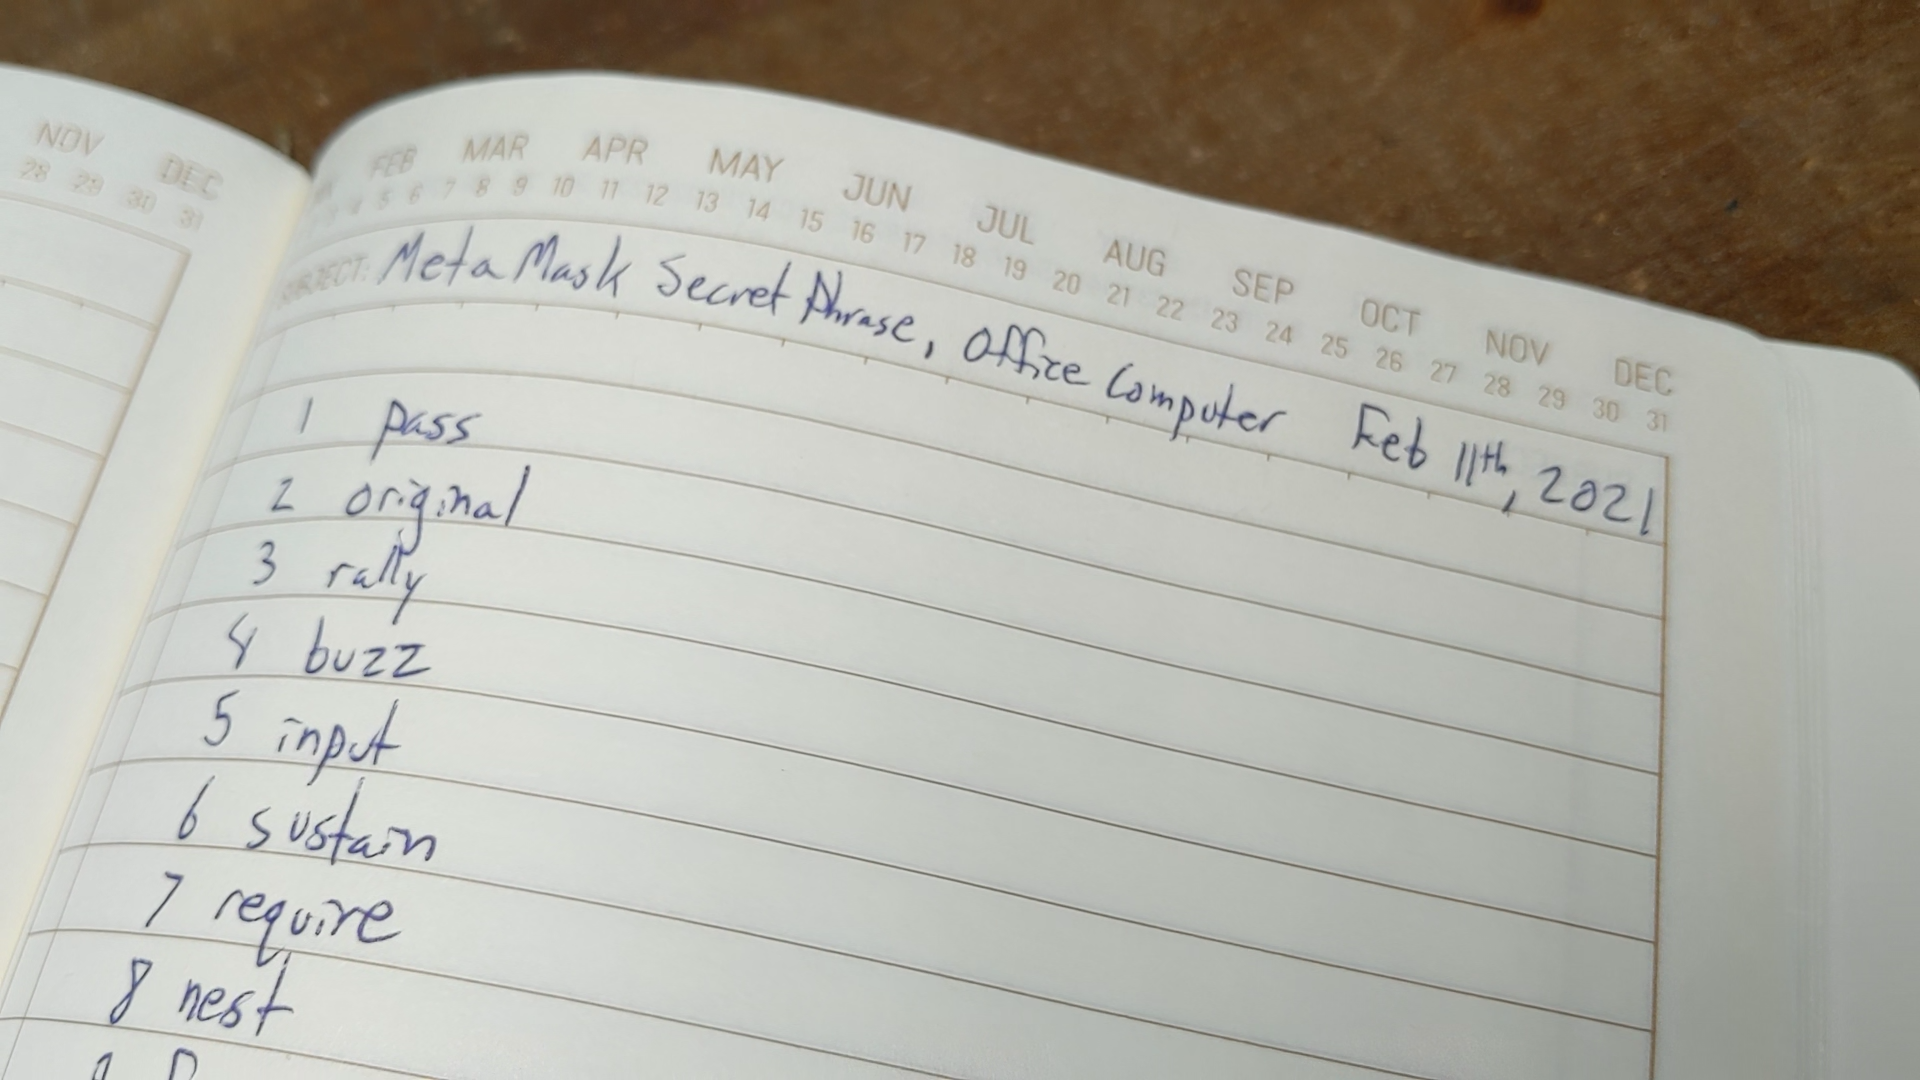 NOV DEC
28 29 30 31
FEB MAR APR MAY JUN JUL AUG SEP OCT NOV DEC
4 5 6 7 8 9 10 11 12 13 14 15 16 17 18 19 20 21 22 23 24 25 26 27 28 29 30 31
SUBJECT: MetaMask Secret Phrase, Office Computer Feb 11th, 2021
1 pass
2 original
3 rally
4 buzz
5 input
6 sustain
7 require
8 nest